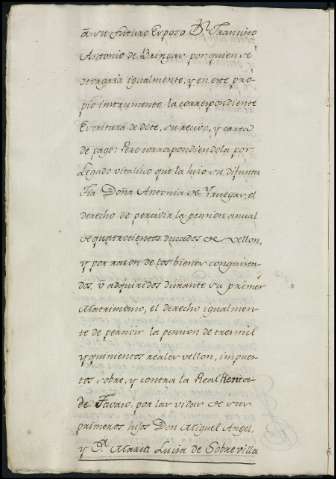 à su futuro Esposo Dn. Francisco
Antonio de Bringas, por quien se
otorgará igualmente, y en este pro-
pio instrumento, la correspondiente
Escritura de dote, su recivo, y carta
de pago: Pero correspondiendola por
Legado vitalicio que la hizo su difunta
Tia Doña Antonia de Yruegas, el
derecho de percivir la pension anual
de quatrocientos ducados de vellon,
y por razon de los bienes
dos, ò adquiridos durante su primer
Matrimonio, el derecho igualmen-
te de percivir la pension de tres mil
y quinientos reales vellon, impues-
tos sobre, y contra la Real Renta
de Tavaco, por las vidas de sus
primeros hijos Don Miguel Angel,
y Dª. Maria Lucia de Sobrevilla